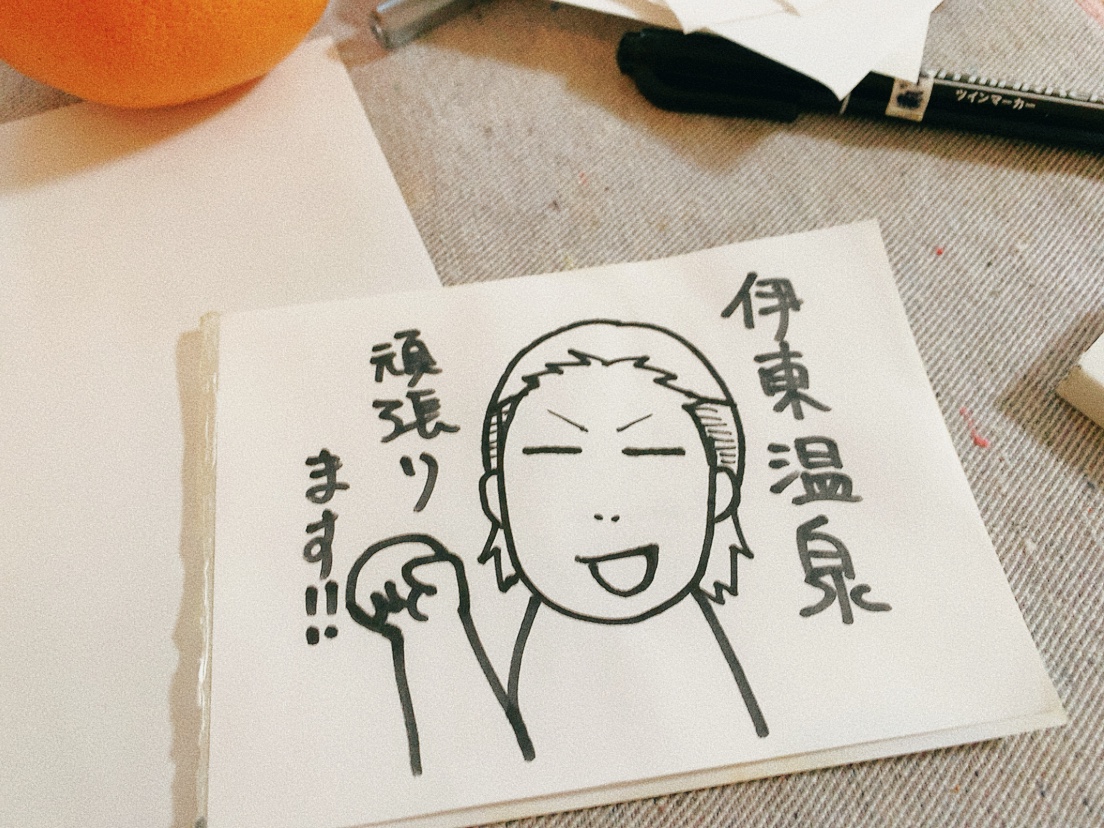 伊東温泉
頑張り
ます!!
ツインマーカー